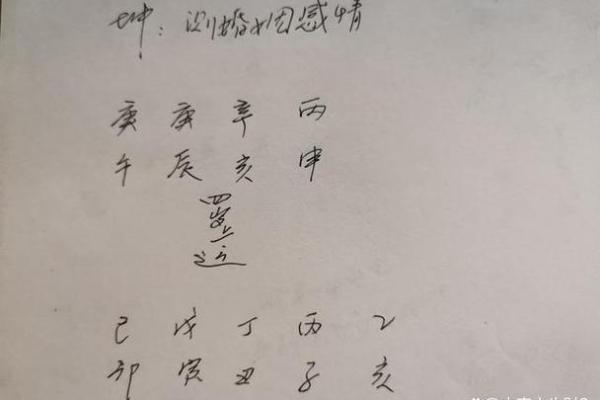 坤：测婚姻感情
庚 庚 辛 丙
午 辰 亥 申
四岁上运
己 戊 丁 丙 乙
卯 寅 丑 子 亥